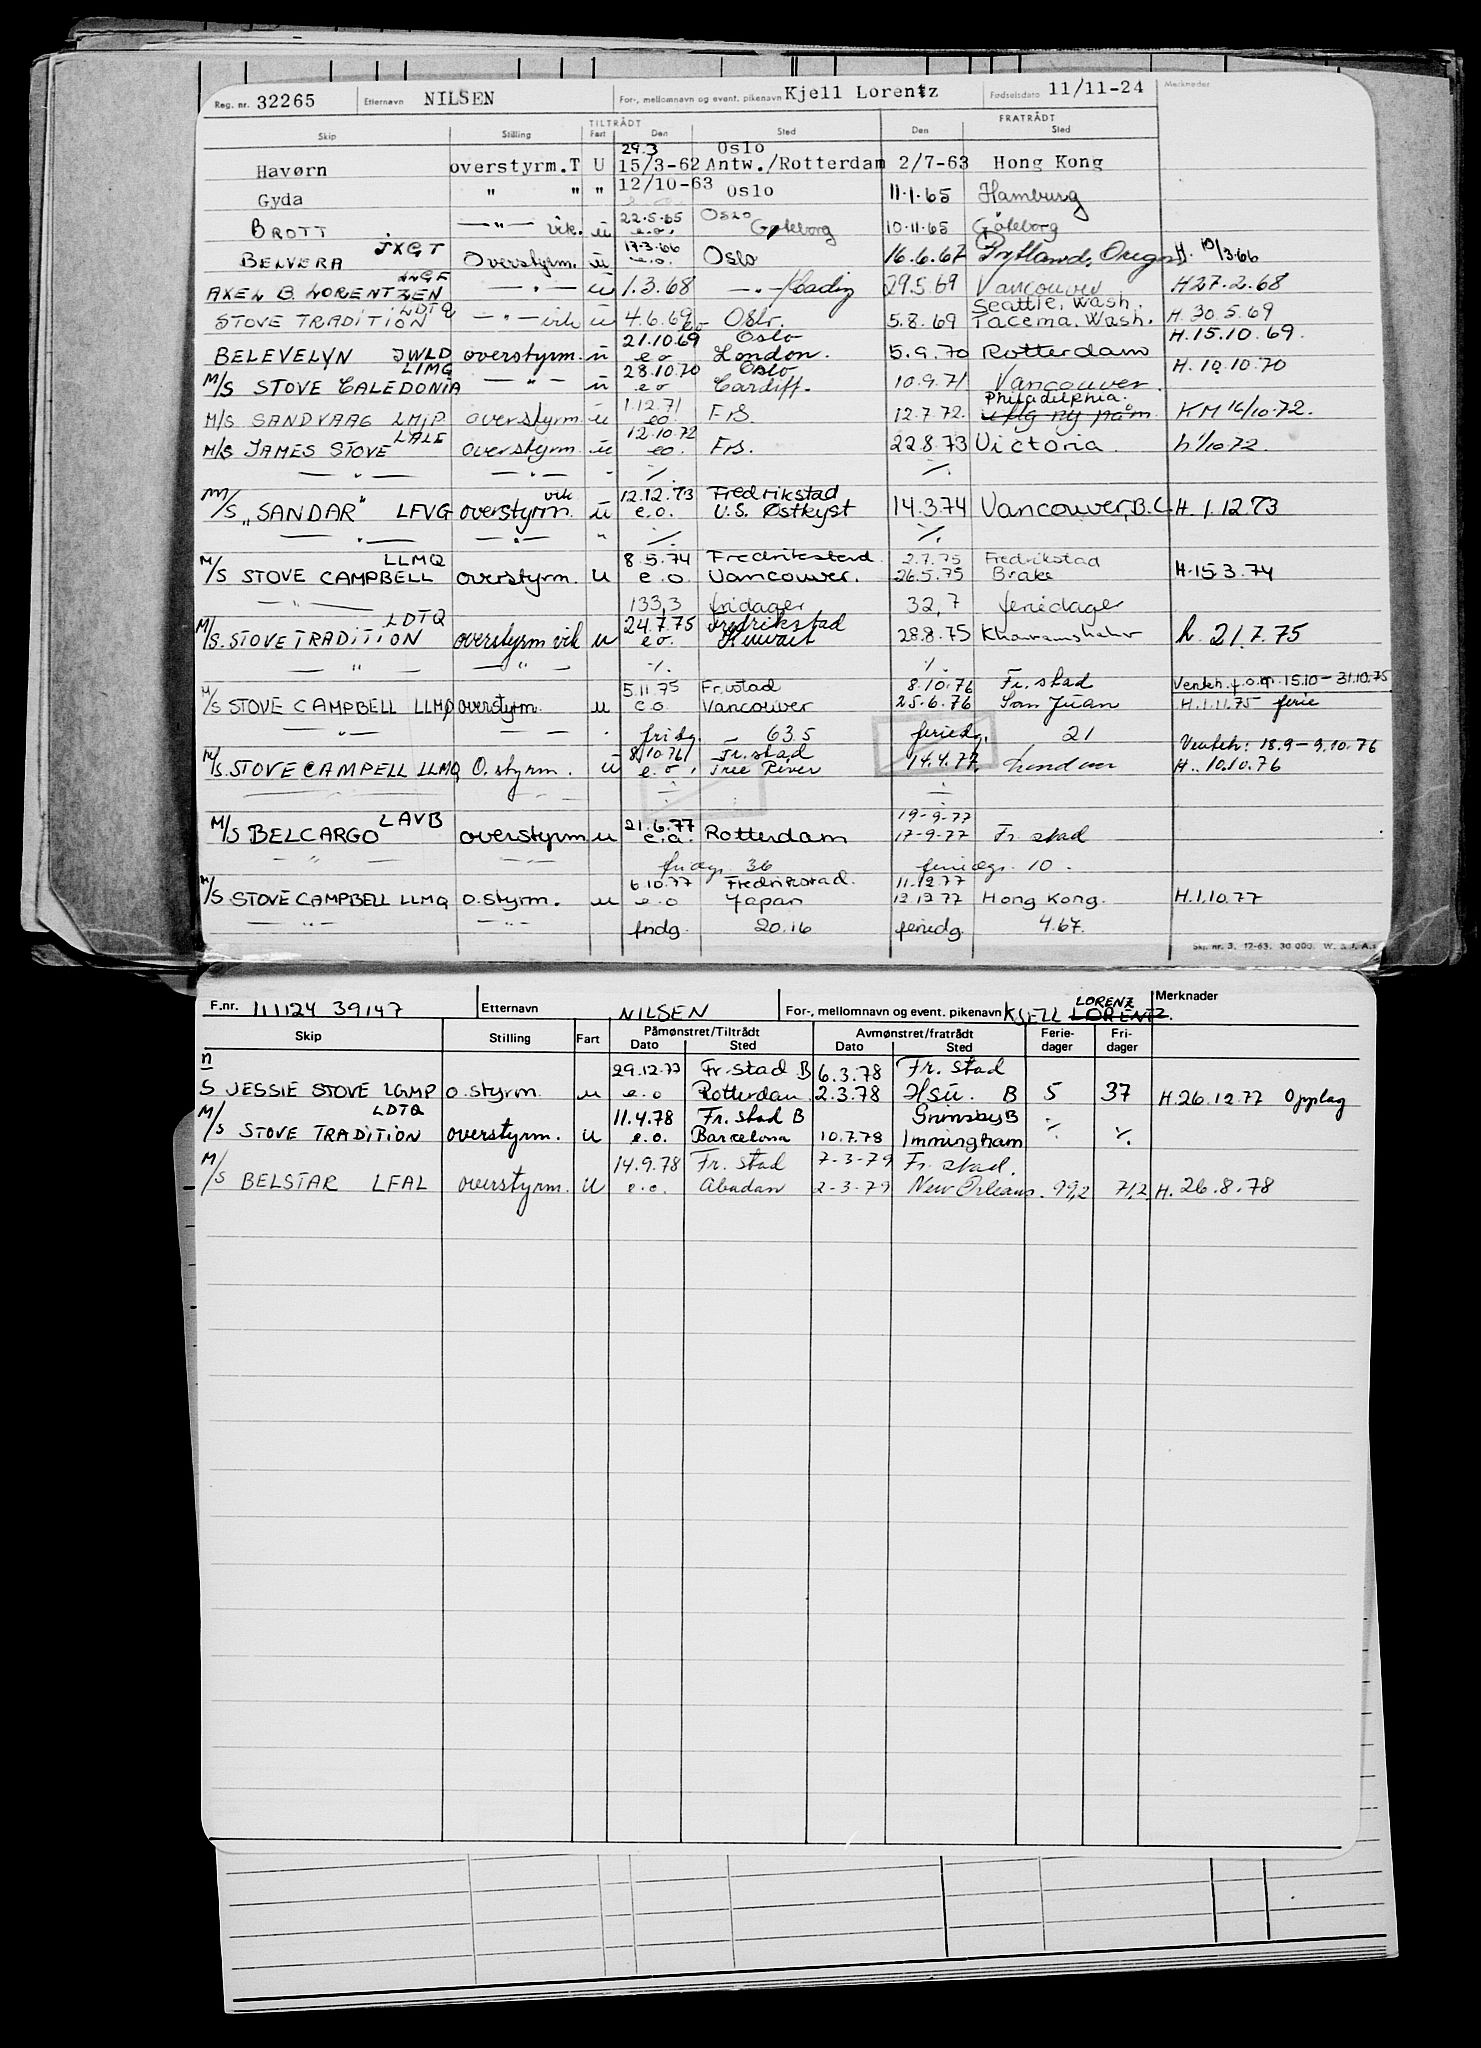 Reg. nr. 32265 Etternavn NILSEN For-, mellomnavn og event. pikenavn Kjell Lorentz Fødselsdato 11/11-24 Merknader
TILTRÅDT FRATRÅDT
Skip Stilling Fart Den Sted Den Sted
29.3 Oslo
Havørn overstyrm.T U 15/3-62 Antw./Rotterdam 2/7-63 Hong Kong
Gyda " " " 12/10-63 Oslo 11.1.65 Hamburg
22.5.65 Oslo
BROTT —"— vik. u e.o. Gøteborg 10.11.65 Göteborg
JXGT 17.3.66
BELVERA Overstyrm. u e.o. Oslo 16.6.67 Portland, Oregon H. 10/3.66
AXEL B. LORENTZEN —"— u 1.3.68 —"— 29.5.69 Vancouver H 27.2.68
LDTQ Seattle, Wash.
STOVE TRADITION —"— vik u 4.6.69 eo Oslo. 5.8.69 Tacema. Wash. H. 30.5.69
21.10.69 Oslo H.15.10.69.
BELEVELYN JWLD overstyrm. u e o London. 5.9.70 Rotterdam
LIMG 28.10.70 Oslo H. 10.10.70
M/S STOVE CALEDONIA —"— u e o Cardiff. 10.9.71 Vancouver.
1.12.71 Philadelphia.
M/S SANDVAAG LMJP overstyrm u eo FrS. 12.7.72. KM 16/10.72.
LALE 12.10.72
M/S JAMES STOVE overstyrm. u eo. FrS. 22.8.73 Victoria. h 1/10.72
—"— —"— ./. ./.
vik 12.12.73 Fredrikstad
M/S "SANDAR" LFVG overstyrm. u e.o. U.S. Østkyst 14.3.74 Vancouver, B.C. H. 1.12.73
—"— —"— " ./. ./.
LLMQ 8.5.74 Fredrikstad 2.7.75 Fredrikstad
M/S STOVE CAMPBELL overstyrm. u e.o. Vancouver. 26.5.75 Brake H.15.3.74
—"— 133,3 fridager 32,7 feriedager
LDTQ 24.7.75 Fredrikstad
M/S. STOVE TRADITION overstyrm vik u e o. Kuwait 28.8.75 h. 21.7.75
—"— —"— ./. ./.
5.11.75 Fr.stad 8.10.76 Fr. stad Venteh. f.o.m. 15.10 – 31.10.75
M/S STOVE CAMPBELL LLMQ overstyrm. u e.o Vancouver 25.6.76 San Juan H.1.11.75 ferie
—"— fridg. 63.5 feriedg. 21
8/10.76 Fr.stad Venteh: 18.9 – 9.10.76
M/S. STOVE CAMPELL LLMQ O.styrm. u e.o. Tree River 14.4.77. London H. 10.10.76
LAVB 21.6.77 19-9-77
M/S BELCARGO overstyrm u e.o. Rotterdam 17-9-77 Fr. stad
—"— —"— fridg. 36 feriedgs. 10.
6.10.77 Fredrikstad. 11.12.77
M/S STOVE CAMPBELL LLMQ o.styrm. u e.o Japan 12.12.77 Hong Kong. H.1.10.77
—"— —"— fridg. 20.16 feriedg. 4.67.
Skj. nr. 3. 12-63. 30 000. W. & J. A.s
F.nr. 111124 39147 Etternavn NILSEN For-, mellomnavn og event. pikenavn KJELL LORENZ LORENTZ. Merknader
Skip Stilling Fart Påmønstret/Tiltrådt Avmønstret/fratrådt Ferie- Fri-
Dato Sted Dato Sted dager dager
n 29.12.77 Fr.stad B 6.3.78 Fr. stad
S JESSIE STOVE LGMP o.styrm. u e.o Rotterdam 2.3.78 Hsü. B 5 37 H.26.12.77 Opplag
LDTQ 11.4.78 Fr. stad B Grimsby B
M/S STOVE TRADITION overstyrm. u e.o. Barcelona 10.7.78 Immingham ./. ./.
14.9.78 Fr. stad 7-3-79 Fr. stad.
M/S BELSTAR LFAL overstyrm. u e.o. Abadan 2-3-79 New Orleans. 99,2 71,2 H. 26.8.78